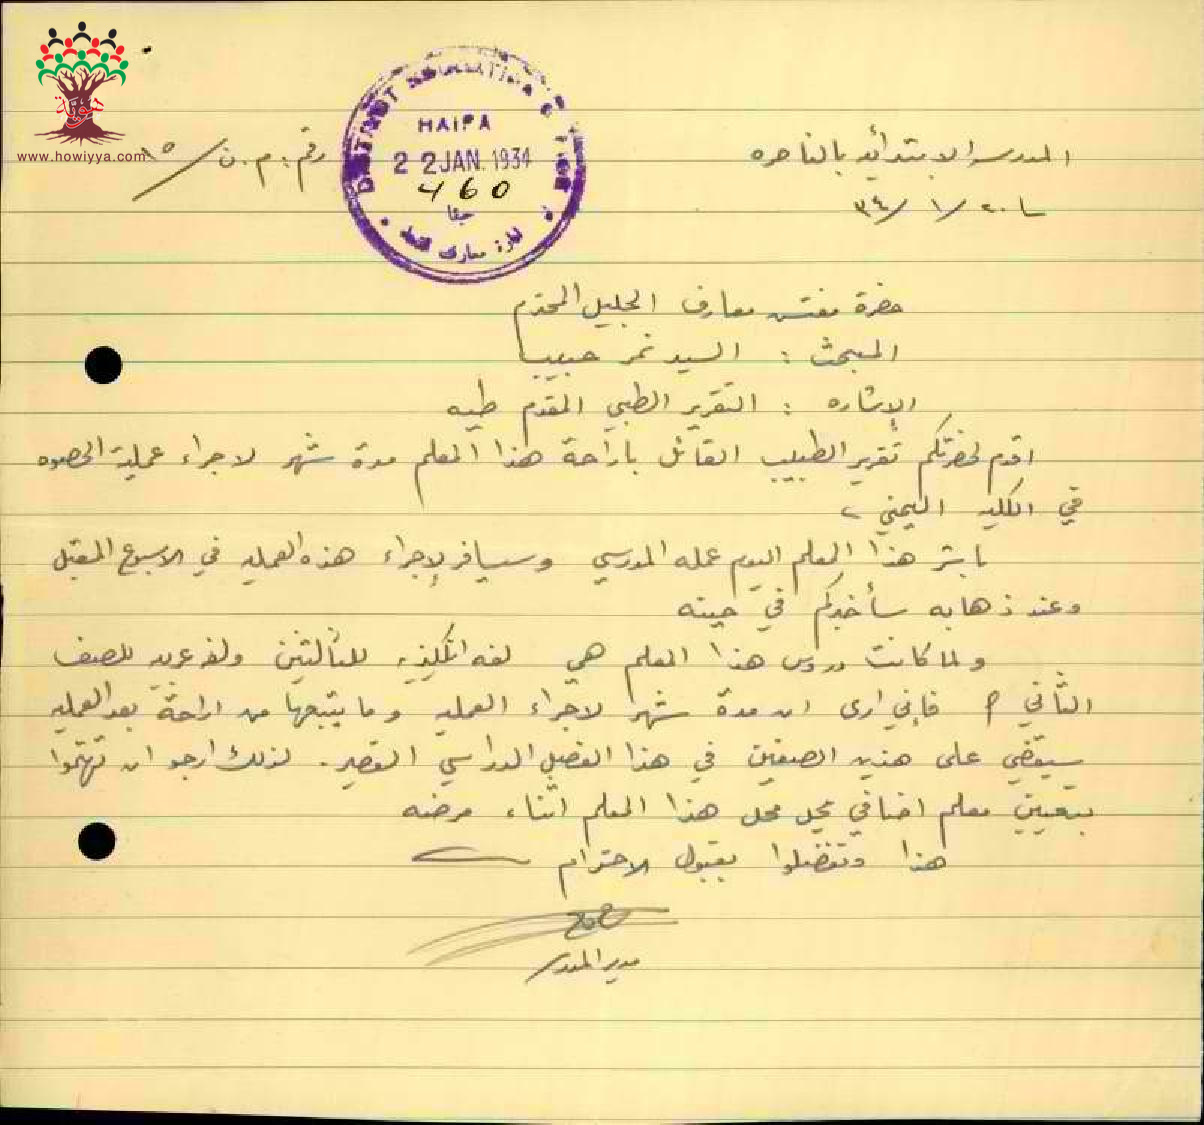 هوية
www.howiyya.com
DISTRICT EDUCATION OFFICE
HAIFA
22 JAN. 1934
460
حيفا
ادارة معارف
المدرسة الابتدائيه بالناصره
رقم: م. ن/ ١٥
٢٠/ ١/ ٣٤
حضرة مفتش معارف الجليل المحترم
المبحث : السيد نمر حبيب
الإشاره : التقرير الطبي المقدم طيه
اقدم لحضرتكم تقرير الطبيب القائل باراحة هذا المعلم مدة شهر لاجراء عملية الحصوه
في الكليه اليمنى
باشر هذا المعلم اليوم عمله المدرسي وسيسافر لإجراء هذه العمليه في الاسبوع المقبل
وعند ذهابه سأخبركم في حينه
ولما كانت دروس هذا المعلم هي لغه انكليزيه للثالثين ولغه عربيه للصف
الثاني فإني ارى ان مدة شهر لاجراء العمليه وما يتبعها من اراحة بعد العمليه
سيقضي على هذين الصفين في هذا الفصل الدراسي القصير. لذلك ارجو ان تهتموا
بتعيين معلم اضافي يحل محل هذا المعلم اثناء مرضه
هذا وتفضلوا بقبول الاحترام
مدير المدرسة